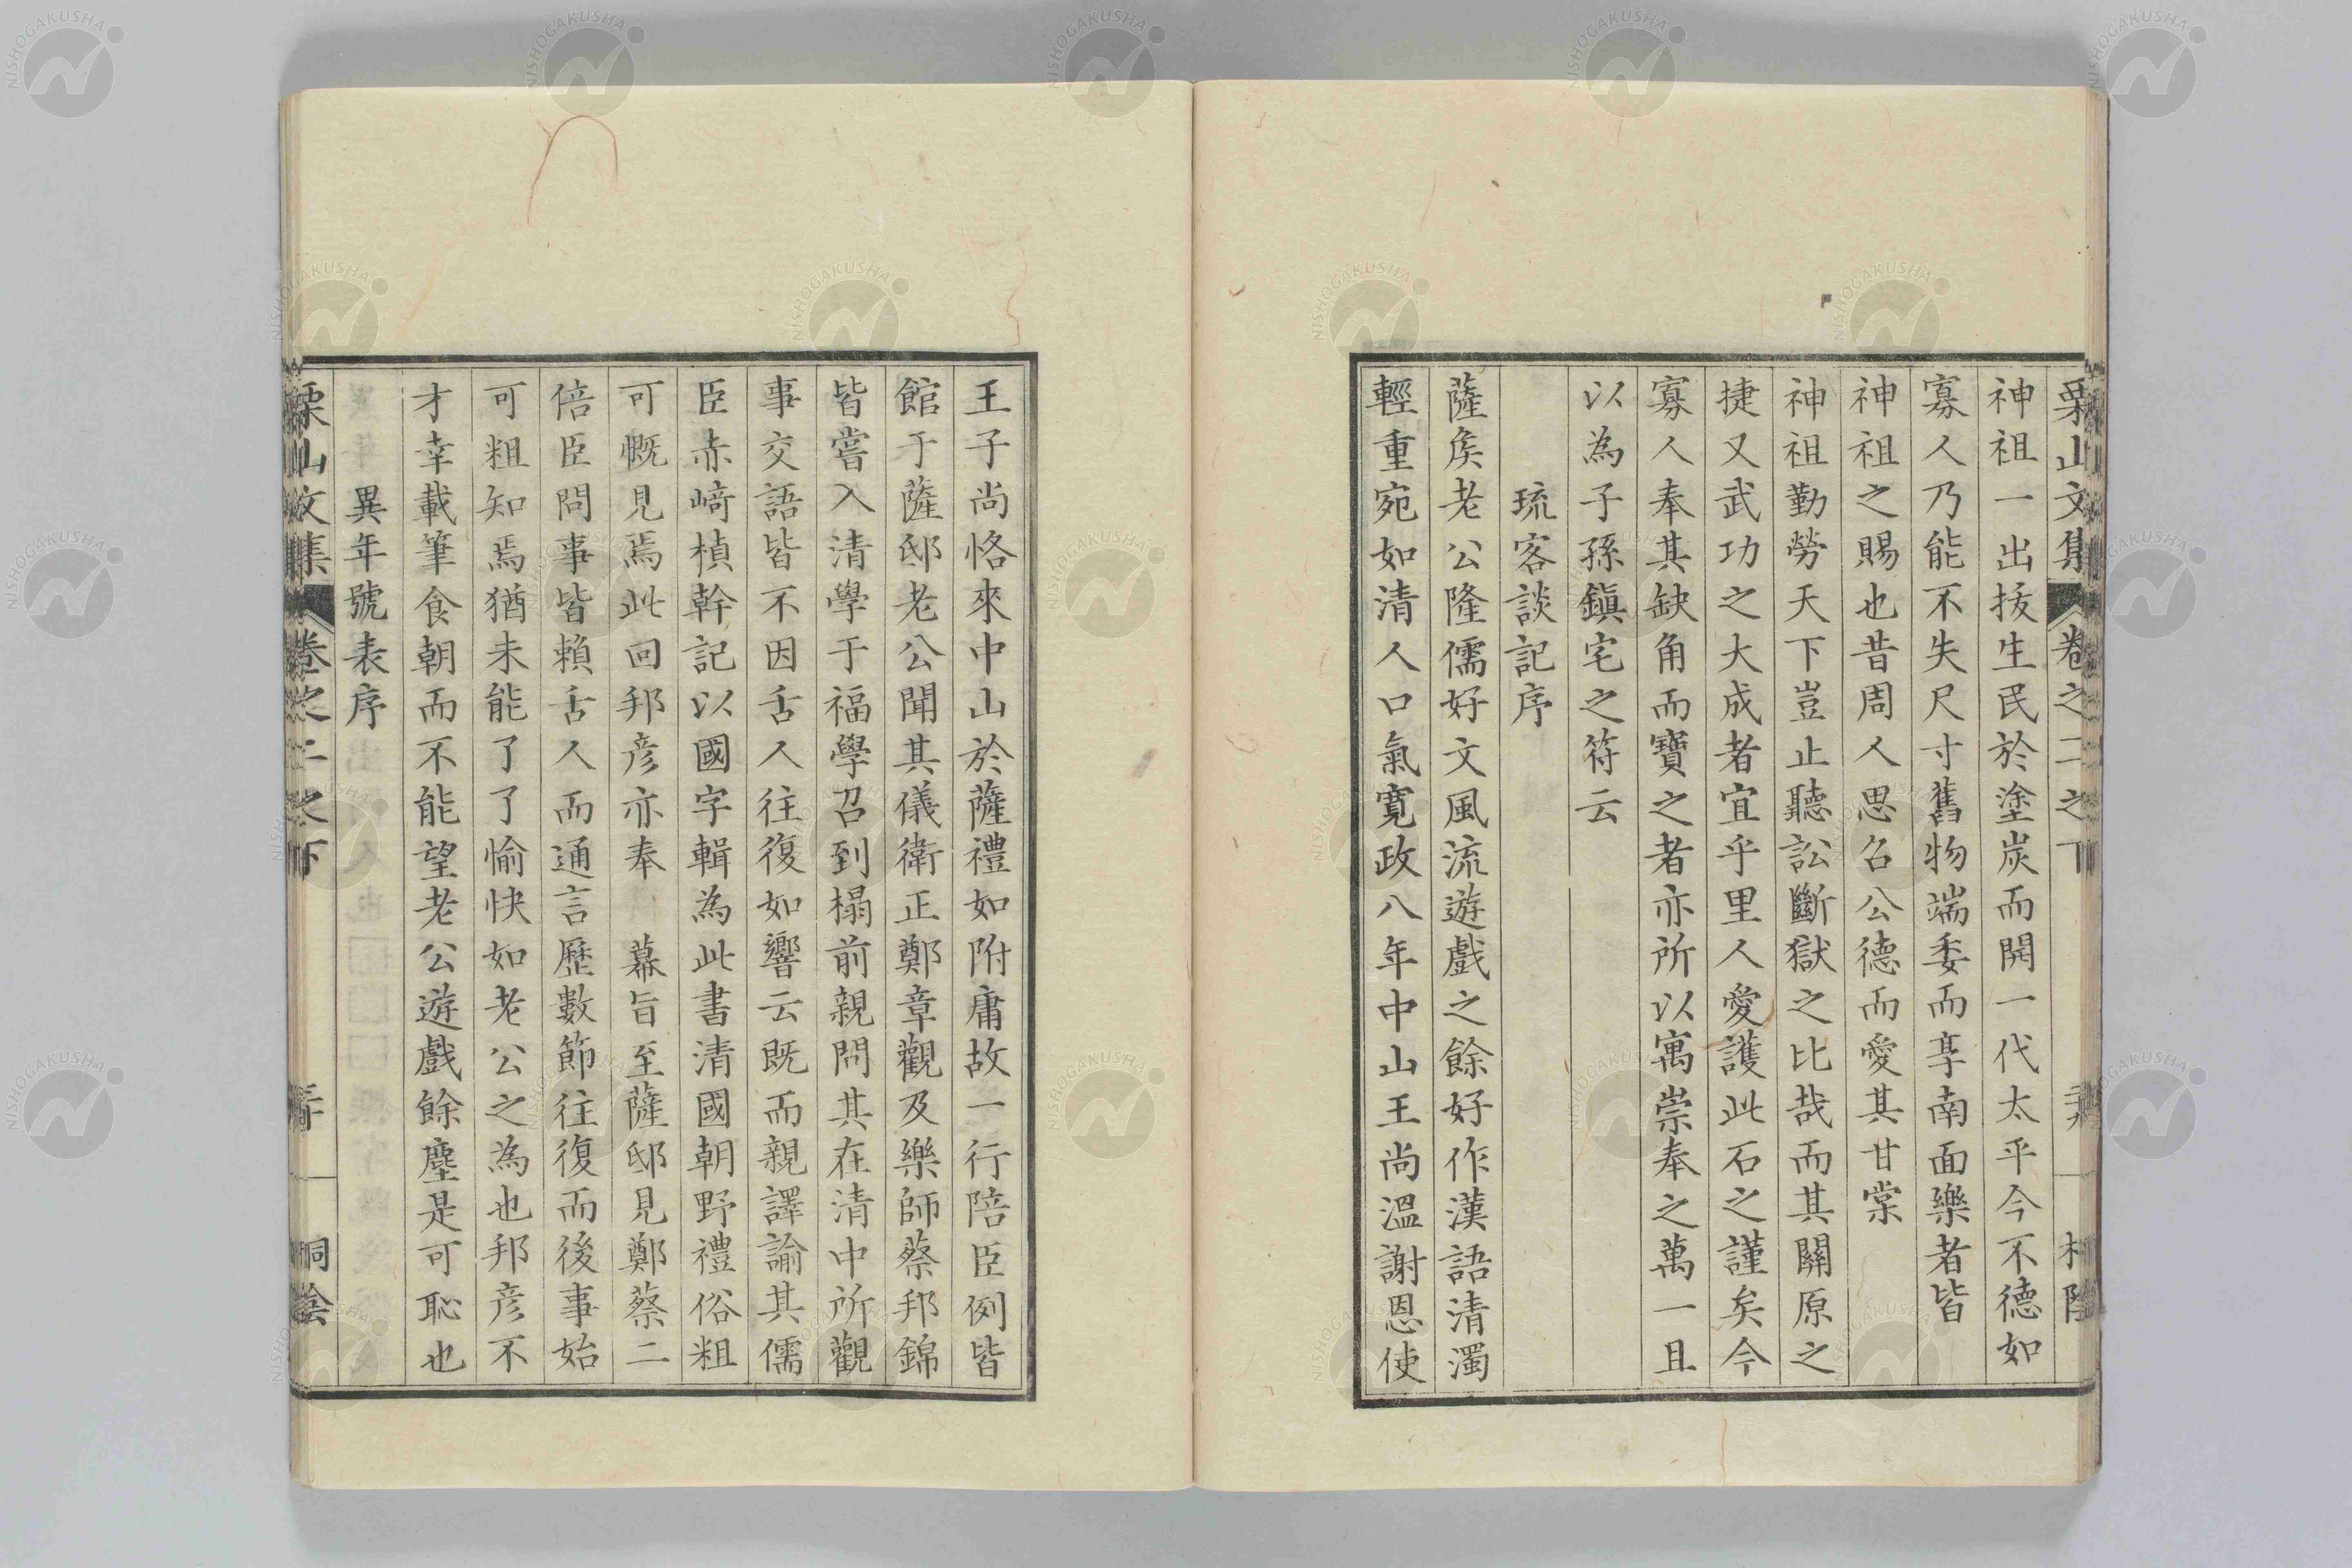 栗山文集 卷之二之下
神祖一出拔生民於塗炭而開一代太平今不德如
寡人乃能不失尺寸舊物端委而享南面樂者皆
神祖之賜也昔周人思召公德而愛其甘棠
神祖勤勞天下豈止聽訟斷獄之比哉而其關原之
捷又武功之大成者宜乎里人愛護此石之謹矣今
寡人奉其缺角而寶之者亦所以寓崇奉之萬一且
以為子孫鎭宅之符云
琉客談記序
薩矦老公隆儒好文風流遊戲之餘好作漢語清濁
輕重宛如清人口氣寬政八年中山王尚溫謝恩使
王子尚恪來中山於薩禮如附庸故一行陪臣例皆
館于薩邸老公聞其儀衛正鄭章觀及樂師蔡邦錦
皆嘗入清學于福學召到榻前親問其在清中所觀
事交語皆不因舌人往復如響云既而親譯諭其儒
臣赤﨑楨幹記以國字輯為此書清國朝野禮俗粗
可慨見焉此回邦彦亦奉 幕旨至薩邸見鄭蔡二
倍臣問事皆賴舌人而通言歷數節往復而後事始
可粗知焉猶未能了了愉快如老公之為也邦彦不
才幸載筆食朝而不能望老公遊戲餘塵是可恥也
異年號表序
栗山文集 卷之二之下 桐陰
NISHOGAKUSHA